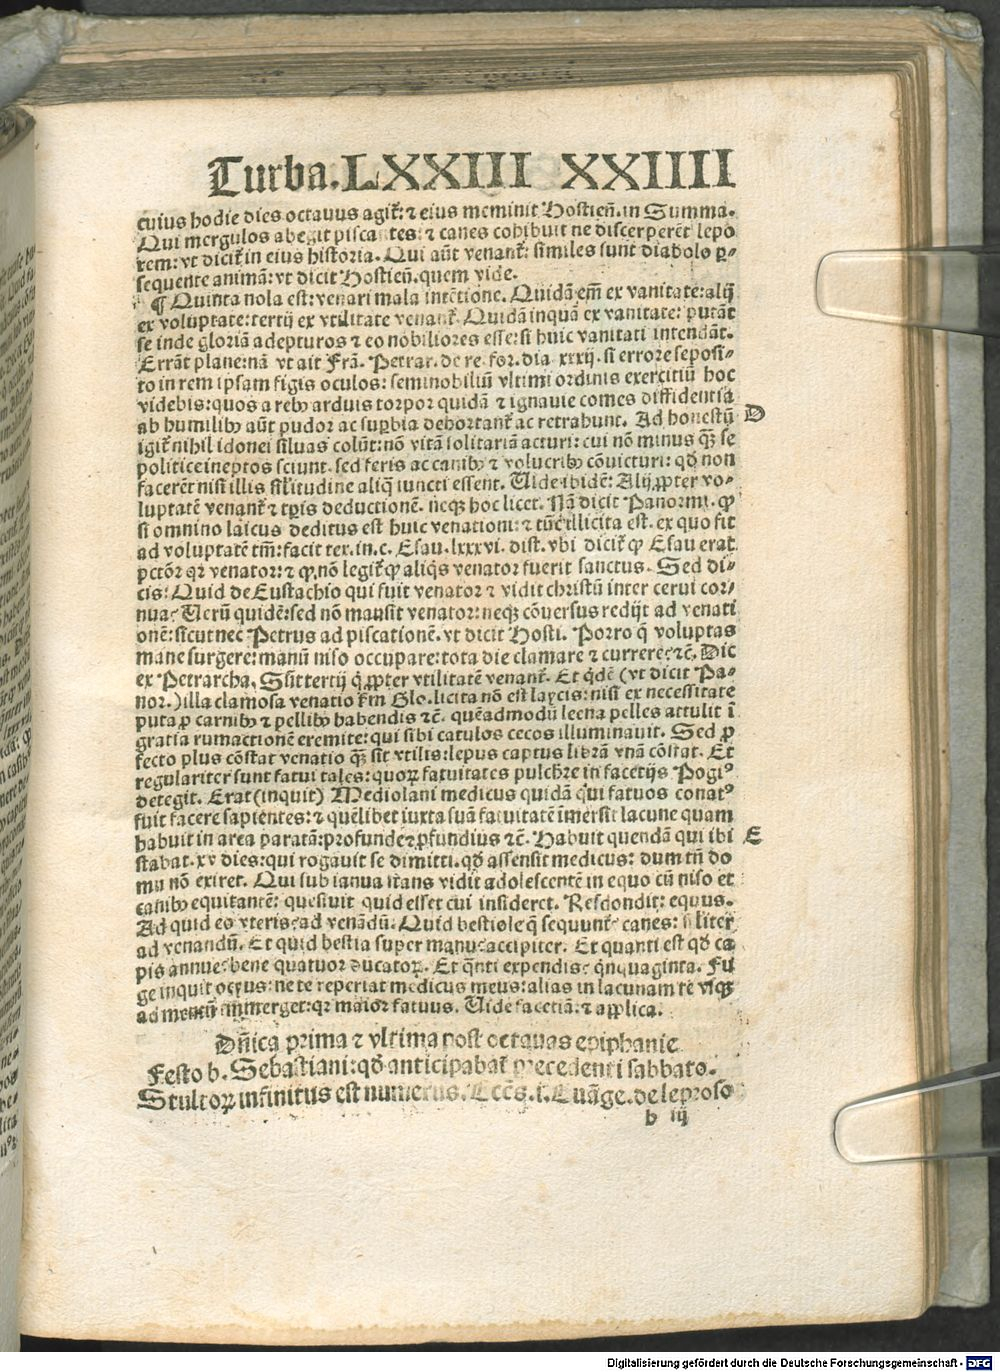 Turba. LXXIII XXIIII
cuius hodie dies octauus agit᷑: ⁊ eius meminit Hostien̄. in Summa.
Qui mergulos abegit piscantes: ⁊ canes cohibuit ne discerperēt lepo
rem: vt dicit᷑ in eius historia. Qui aūt venant᷑: similes sunt diabolo ꝑ-
sequente animā: vt dicit Hostien̄. quem vide.
¶ Quinta nola est: venari mala intētione. Quidā em̄ ex vanitate: alij
ex voluptate: tertij ex vtilitate venant᷑. Quidā inquā ex vanitate: putāt
se inde gloriā adepturos ⁊ eo nobiliores esse: si huic vanitati intendāt.
Errāt plane: nā vt ait Frā. Petrar. de re. for. dia xxxij. si errore seposi-
to in rem ipsam figis oculos: seminobiliū vltimi ordinis exercitiū hoc
videbis: quos a rebꝰ arduis torpor quidā ⁊ ignauie comes diffidentia
ab humilibꝰ aūt pudor ac suꝑbia dehortant᷑ ac retrahunt. Ad honestū D
igit᷑ nihil idonei siluas colūt: nō vitā solitariā acturi: cui nō minus qᷓꝫ se
politice ineptos sciunt. sed feris ac canibꝰ ⁊ volucribꝰ cōuicturi: qd̓ non
facerēt nisi illis sil̓itudine aliq̄ iuncti essent. Uide ibidē: Alij ꝓpter vo-
luptatē venant᷑ ⁊ tꝑis deductionē. neqꝫ hoc licet. Nā dicit Panormi. ꝙ
si omnino laicus deditus est huic venationi: ⁊ tūc illicita est. ex quo fit
ad voluptatē tm̄: facit tex. in. c. Esau. lxxxvi. dist. vbi dicit᷑ ꝙ Esau erat
pctōr qr venator: ⁊ ꝙ nō legit᷑ ꝙ aliq̄s venator fuerit sanctus. Sed di-
cis: Quid de Eustachio qui fuit venator ⁊ vidit christū inter cerui cor-
nua? Uerū quidē: sed nō mansit venator: neqꝫ cōuersus redijt ad venati
onē: sicut nec Petrus ad piscationē. vt dicit Hosti. Porro q̄ voluptas
mane surgere: manū niso occupare: tota die clamare ⁊ currere ⁊c̄. Dic
ex Petrarcha. Ssit tertij q̄ ꝓpter vtilitatē venant᷑. Et qd̄ē (vt dicit Pa-
nor.) illa clamosa venatio ẜm Glo. licita nō est laycis: nisi ex necessitate
puta ꝓ carnibꝰ ⁊ pellibꝰ habendis ⁊c̄. quēadmodū leena pelles attulit ī
gratiarumactionē eremite: qui sibi catulos cecos illuminauit. Sed ꝓ
fecto plus cōstat venatio qᷓꝫ sit vtilis: lepus captus librā vnā cōstat. Et
regulariter sunt fatui tales: quoꝝ fatuitates pulchre in facetijs Pogiꝰ
detegit. Erat (inquit) Mediolani medicus quidā qui fatuos conatꝰ
fuit facere sapientes: ⁊ quēlibet iuxta suā fatuitatē imersit lacune quam
habuit in area paratā: profunde ⁊ ꝓfundius ⁊c̄. Habuit quendā qui ibi E
stabat. xv dies: qui rogauit se dimitti. qd̓ assensit medicus: dum tn̄ do
mū nō exiret. Qui sub ianua stans vidit adolescentē in equo cū niso et
canibꝰ equitantē: quesiuit quid esset cui insideret. Respondit: equus.
Ad quid eo vteris? ad venādū. Quid bestiole q̄ sequunt᷑? canes: similiter
ad venandū. Et quid bestia super manu? accipiter. Et quanti est qd̓ ca
pis annue? bene quatuor ducatoꝝ. Et q̄nti expendis? q̄nquaginta. Fu
ge inquit ocyus: ne te reperiat medicus meus: alias in lacunam te vsqꝫ
ad mentū immerget: qr maior fatuus. Uide facetiā: ⁊ applica.
Dn̄ica prima ⁊ vltima post octauas epiphanie
Festo b. Sebastiani: qd̓ anticipabat᷑ precedenti sabbato.
Stultoꝝ infinitus est numerus. Eccēs. i. Euāge. de leproso
b iij
Digitalisierung gefördert durch die Deutsche Forschungsgemeinschaft - DFG